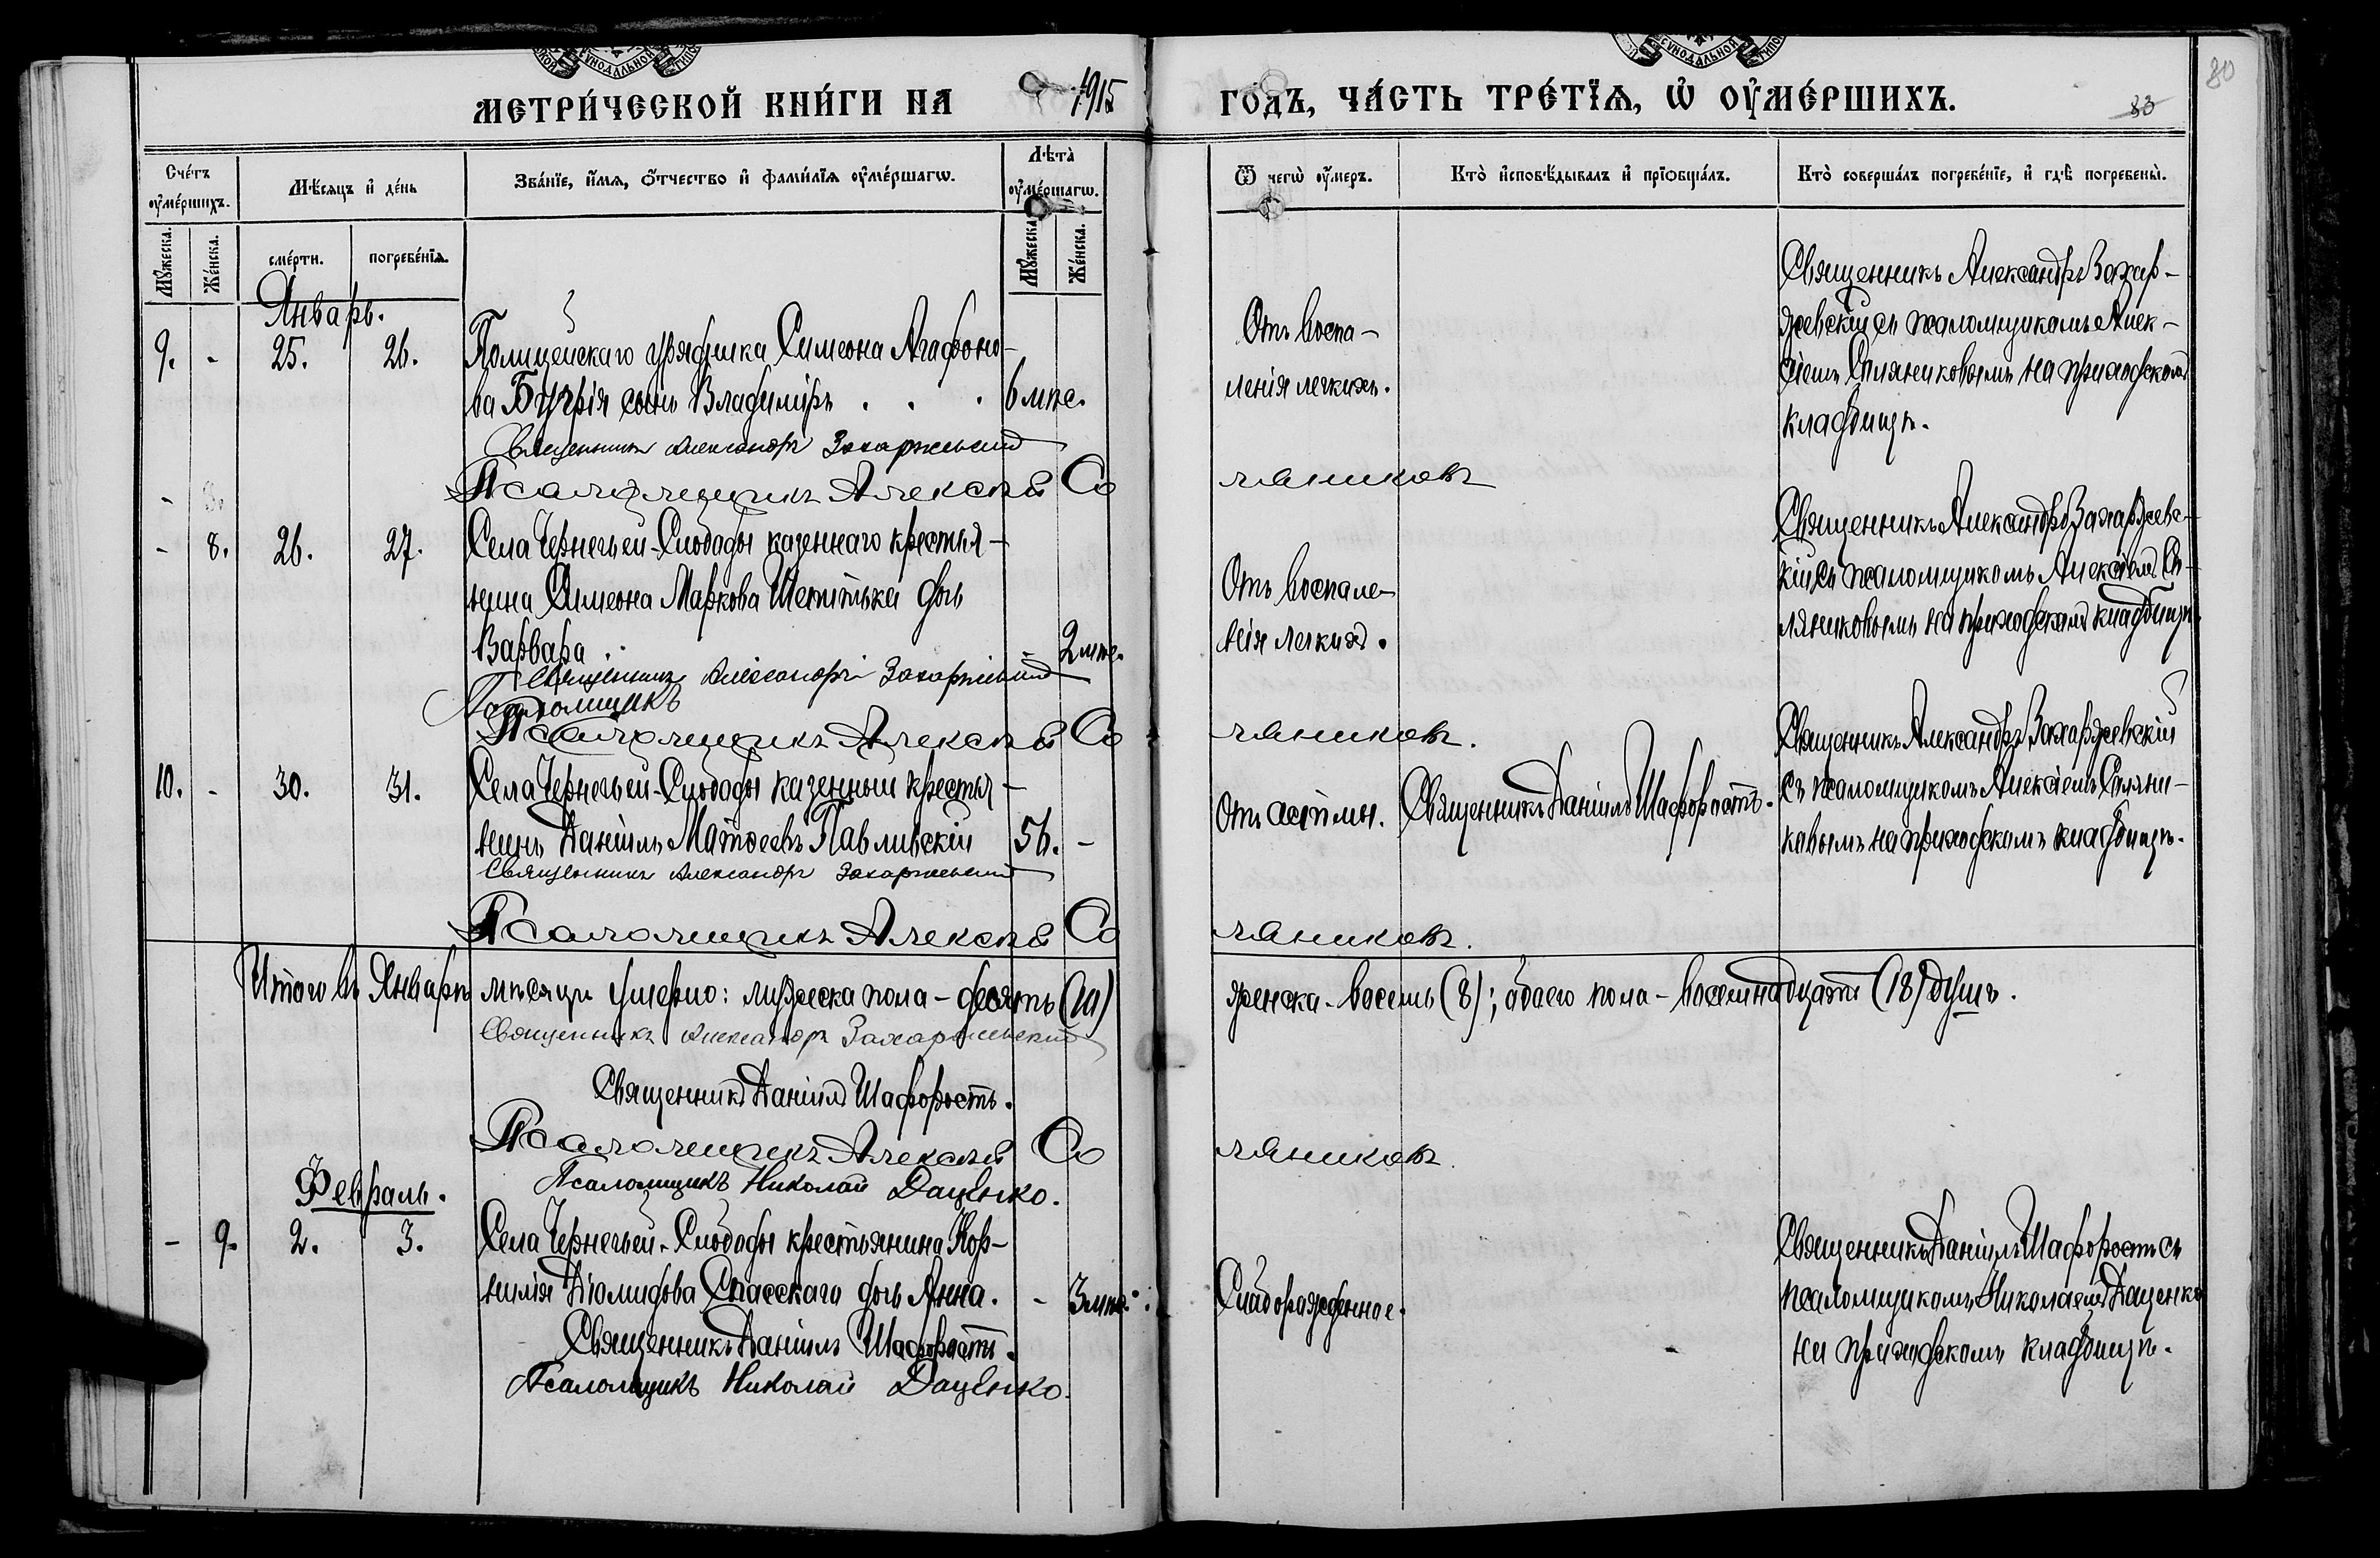 МЕТРИ́ЧЕСКОЙ КНИ́ГИ НА 1915 ГО́ДЪ, ЧА́СТЬ ТРЕ́ТЇѦ, Ѡ҆ ОУ҆МЕ́РШИХЪ.
83
80
Сче́тъ оу҆ме́ршихъ.
Мѣ́сяцъ и҆ де́нь
Зва́нїе, и҆́мя, ѻ҆́тчество и҆ фами́лїя оу҆ме́ршагѡ.
Лѣта̀ оу҆ме́ршагѡ.
Ѿ чегѡ̀ оу҆́меръ.
Кто̀ и҆сповѣ́дывалъ и҆ прїѡбща́лъ.
Кто̀ соверша́лъ погребе́нїе, и҆ гдѣ̀ погребены̀.
Мꙋ́жеска.
Же́нска.
сме́рти.
погребе́нїѧ.
Мꙋ́жеска.
Же́нска.
Январь.
9. - 25. 26.
Полицейскаго урядника Симеона Агафоно-
ва сынъ Владиміръ . . . 6 мѣс.
Отъ воспа-
ленія легкихъ.
Священникъ Александръ Захар-
жевскій съ псаломщикомъ Алек-
сіемъ Соляниковымъ на приходскомъ
кладбищѣ.
Священникъ Александръ Захаржевскій
Псаломщикъ Алексѣй Соляниковъ
- 8. 26. 27.
Села Чернечьей-Слободы казеннаго крестья-
нина Симеона Маркова дочь
Варвара . . - 2 мѣс.
Отъ воспале-
нія легкихъ.
Священникъ Александръ Захаржевс-
кій съ псаломщикомъ Алексіемъ Со-
ляниковымъ на приходскомъ кладбищѣ
Священникъ Александръ Захаржевскій
Псаломщикъ
Псаломщикъ Алексѣй Соляниковъ.
10. - 30. 31.
Села Чернечьей-Слободы казенный крестья-
нинъ Даніилъ Матѳеевъ Павливскій 56. -
Отъ астмы.
Священникъ Даніилъ Шафоростъ.
Священникъ Александръ Захаржевскій
съ псаломщикомъ Алексіемъ Соляни-
ковымъ на приходскомъ кладбищѣ.
Священникъ Александръ Захаржевскій
Псаломщикъ Алексѣй Соляниковъ.
Итого въ Январѣ мѣсяцѣ умерло: мужеска пола - десять (10) женска - восемь (8); обоего пола - восемнадцать (18) душъ.
Священникъ Александръ Захаржевскій
Священникъ Даніилъ Шафоростъ.
Псаломщикъ Алексѣй Соляниковъ.
Псаломщикъ Николай Даценко.
Февраль.
- 9. 2. 3.
Села Чернечьей-Слободы крестьянина Кор-
нилія Діомидова Спасскаго дочь Анна. - 3 мѣс.
Слаборожденное.
Священникъ Даніилъ Шафоростъ съ
псаломщикомъ Николаемъ Даценко
на приходскомъ кладбищѣ.
Священникъ Даніилъ Шафоростъ.
Псаломщикъ Николай Даценко.